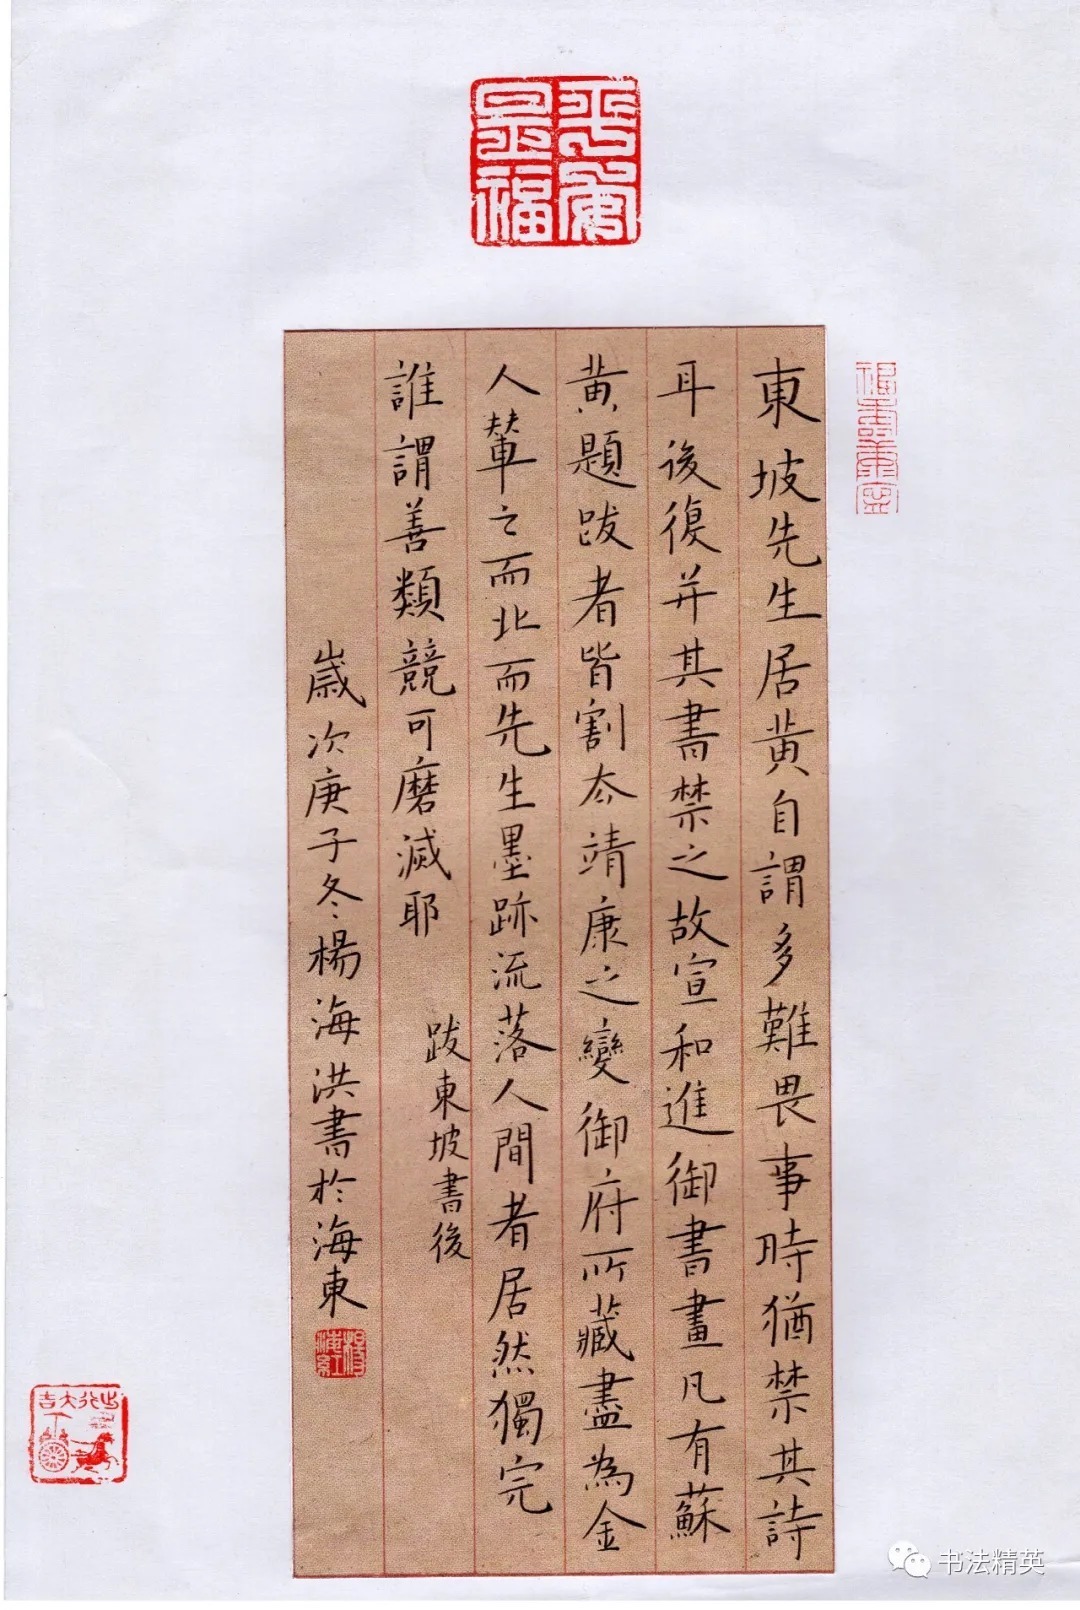 平安是福
福壽康寧
東坡先生居黄自謂多難畏事時猶禁其詩
耳後復并其書禁之故宣和進御書畫凡有蘇
黄題跋者皆割去靖康之變御府所藏盡為金
人輦之而北而先生墨跡流落人間者居然獨完
誰謂善類競可磨滅耶
跋東坡書後
歲次庚子冬楊海洪書於海東
出行大吉
书法精英